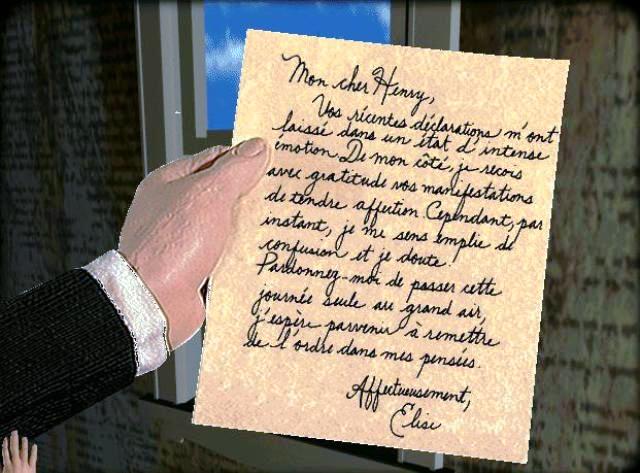 Mon cher Henry,
Vos récentes déclarations m'ont
laissé dans un état d'intense
émotion. De mon côté, je reçois
avec gratitude vos manifestations
de tendre affection. Cependant, par
instant, je me sens emplie de
confusion et je doute.
Pardonnez-moi de passer cette
journée seule au grand air,
j'espère parvenir à remettre
de l'ordre dans mes pensées.
Affectueusement,
Elise